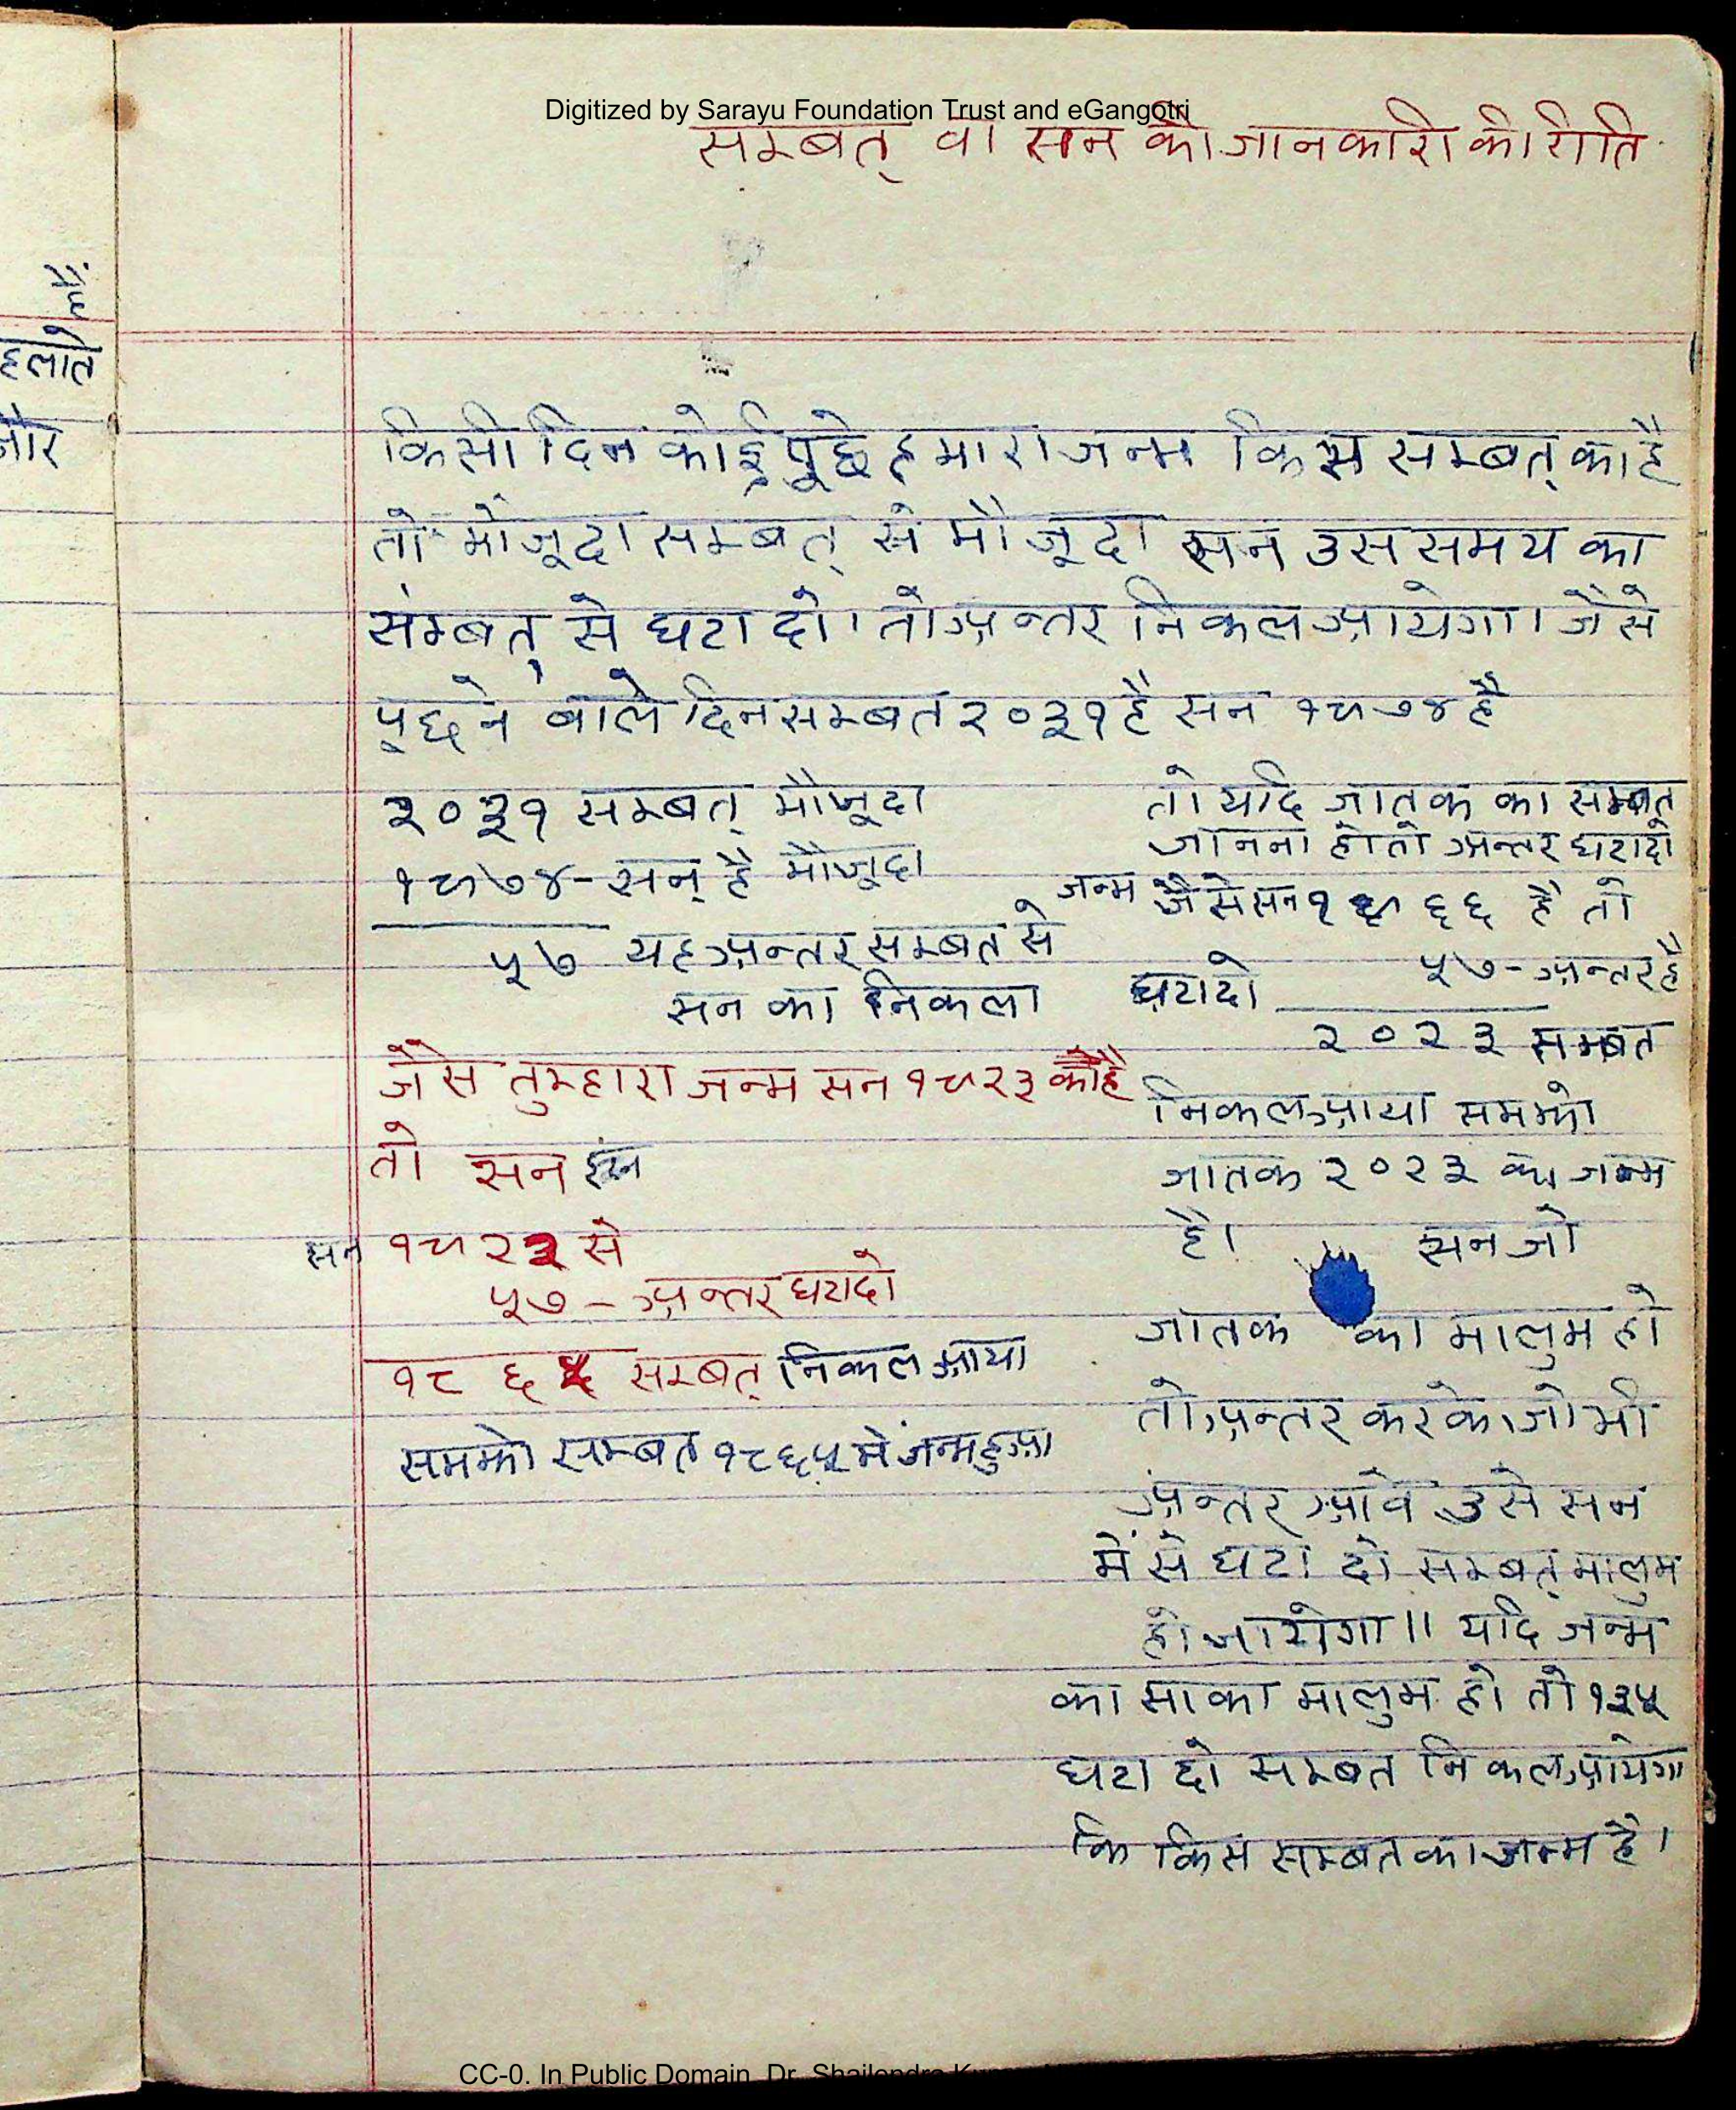 Digitized by Sarayu Foundation Trust and eGangotri
सम्बत् वा सन की जानकारी की रीति
हैं
हलाते
और
किसी दिन कोई पूछे हमारा जन्म किस सम्बत् का है
तो मौजूदा सम्बत् से मौजूदा सन उस समय का
संम्बत् से घटा दो। तो अन्तर निकल आयेगा। जैसे
पूछने वाले दिन सम्बत २०३१ है सन १९७४ है
२०३१ सम्बत् मौजूदा
१९७४ - सन् है मौजूदा
५७ यह अन्तर सम्बत से
सन का निकला
जैसे तुम्हारा जन्म सन १९२३ को है
तो सन
सन १९२२ से
५७ - अन्तर घटादो
१८६५ सम्बत् निकल आया
समझो सम्बत १८६५ में जन्म हुआ
तो यदि जातक का सम्बत
जानना हो तो अन्तर घटादो
जन्म जैसे सन १९६६ है तो
५७ - अन्तर है
घटादो
२०२३ सम्बत
निकल आया समझो
जातक २०२३ का जन्म
है। सन जो
जातक का मालुम हो
तो अन्तर करके जो भी
अन्तर आवे उसे सन
में से घटा दो सम्बत् मालुम
हो जायेगा॥ यदि जन्म
का साका मालुम हो तो १३५
घटा दो सम्बत निकल आयेगा
कि किस सम्बत का जन्म है।
CC-0. In Public Domain. Dr. Shailendra